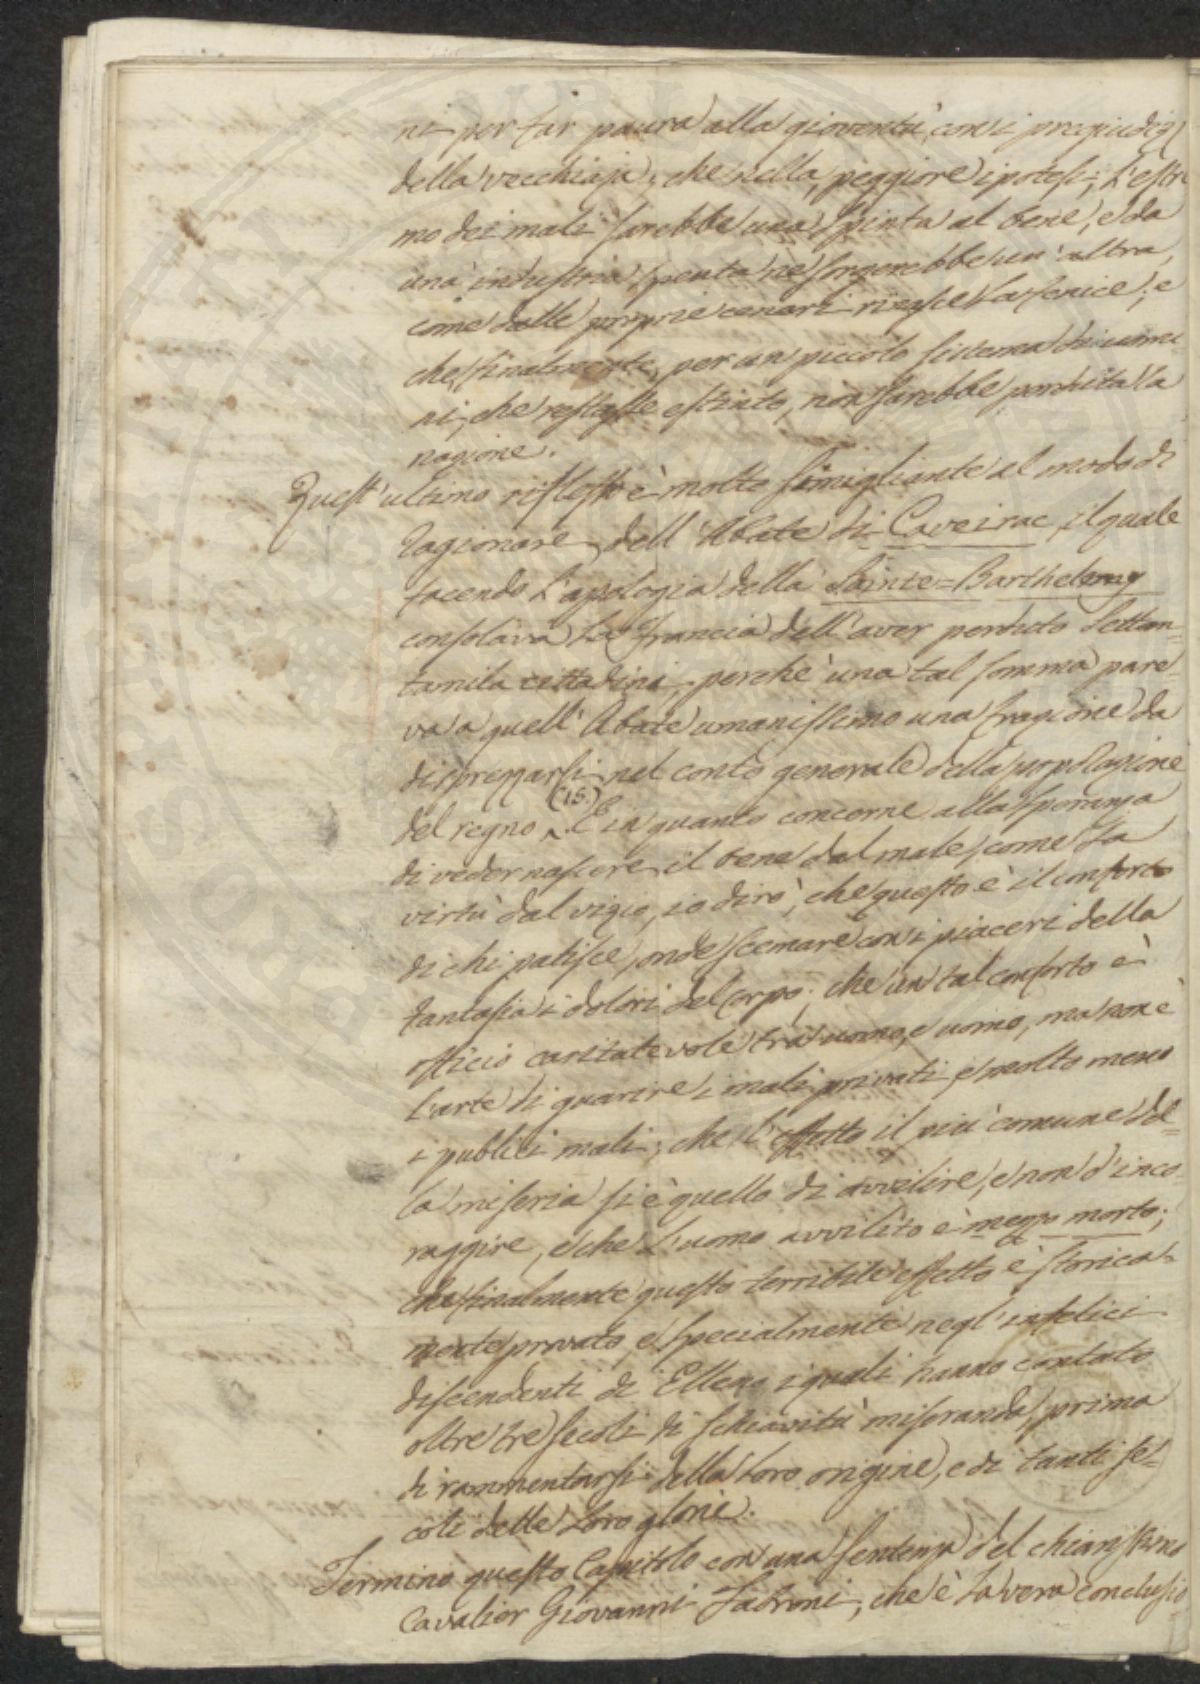 ni per far paura alla gioventù con i pregiudizj
della vecchiaja; che nella peggiore ipotesi, l'estre
mo dei mali sarebbe una spinta al bene, e da
una industria spenta ne sorgerebbe un'altra,
come dalle proprie ceneri rinasce la fenice; e
che, finalmente, per un piccolo sistema di uomi
ni, che restasse estinto, non sarebbe perduta la
nazione.
Quest'ultimo riflesso è molto simigliante al modo di
ragionare dell'Abate di Caveirac, il quale
facendo l'apologia della Sainte=Barthelemy
consolava la Francia dell'aver perduto settan=
tamila cittadini, perchè una tal somma pare
va a quell'Abate umanissimo una frazione da
disprezzarsi nel conto generale della popolazione
del regno (15.). E in quanto concerne alla speranza
di veder nascere il bene dal male, come la
virtù dal vizio, io dirò, che questo è il conforto
di chi patisce, onde scemare con i piaceri della
fantasia i dolori del corpo; che un tal conforto è
officio caritatevole trà uomo, e uomo, ma non è
l'arte di guarire i mali privati, e molto meno
i publici mali; che l'effetto il più comune del=
la miseria si è quello di avvilire, e non d'inco
raggire, e che l'uomo avvilito è mezzo morto;
che finalmente questo terribile effetto è storica=
mente provato, e specialmente negl'infelici
discendenti di Elleno, i quali hanno contato
oltre tre secoli di schiavitù miseranda, prima
di rammentarsi della loro origine, e di tanti se=
coli delle loro glorie.
Termino questo Capitolo con una sentenza del chiarissimo
Cavalier Giovanni Fabroni, che è la vera conclusio